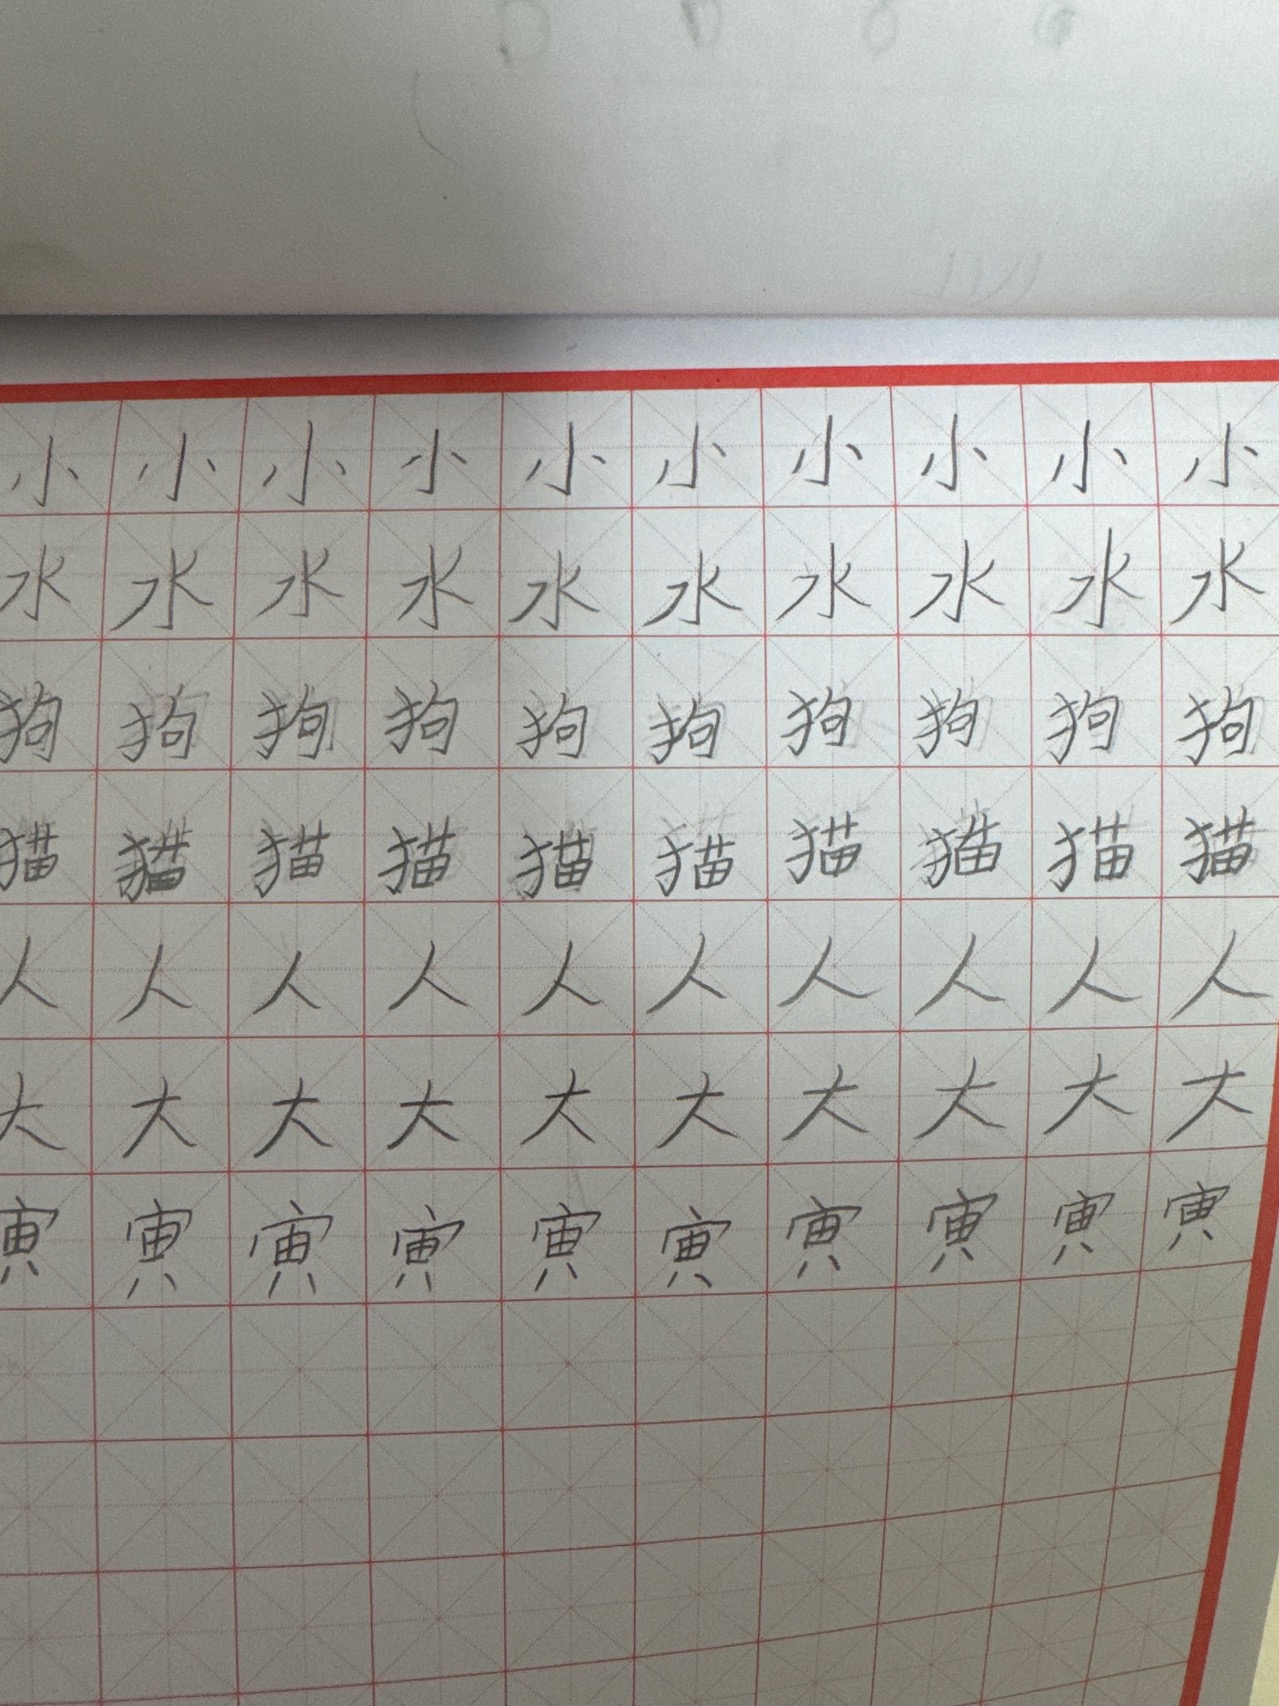 小小小小小小小小小小
水水水水水水水水水水
狗狗狗狗狗狗狗狗狗狗
猫猫猫猫猫猫猫猫猫猫
人人人人人人人人人人
大大大大大大大大大大
寅寅寅寅寅寅寅寅寅寅